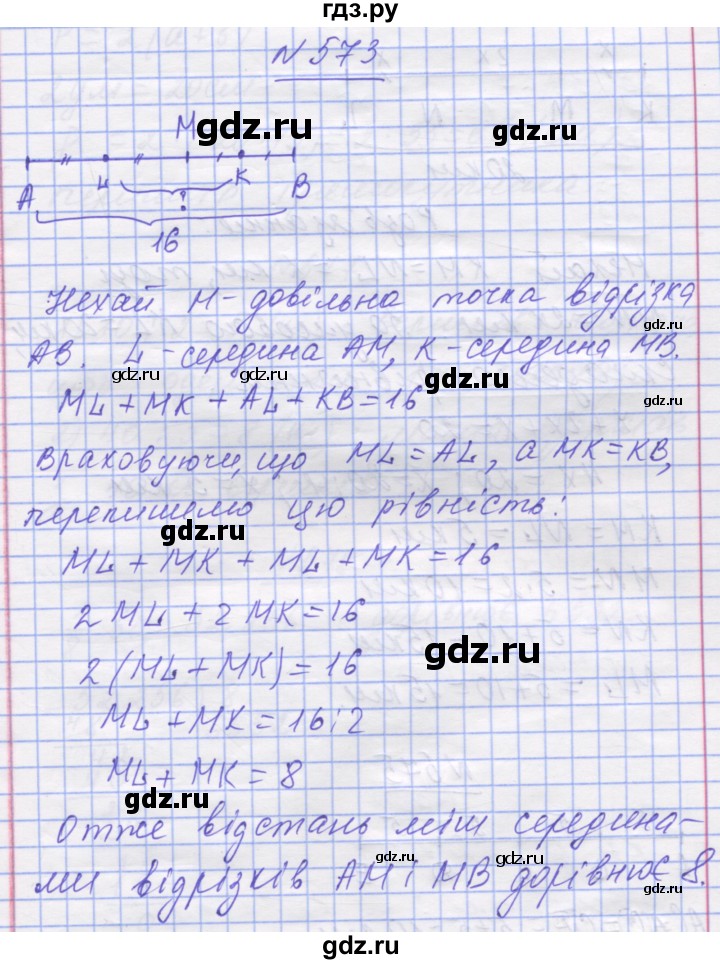 гдз.ру
N 573
M
gdz.ru
gdz.ru
A L ? K B
16
gdz.ru
Нехай М - довільна точка відрізка
АВ. L - середина АМ, К - середина МВ.
gdz.ru gdz.ru gdz.ru
ML + MK + AL + KB = 16
gdz.ru
Враховуючи, що ML = AL, а MK = KB,
перепишемо цю рівність:
gdz.ru
ML + MK + ML + MK = 16
2 ML + 2 MK = 16
gdz.ru
2 (ML + MK) = 16
ML + MK = 16 : 2
ML + MK = 8
gdz.ru
Отже відстань між середина-
gdz.ru
ми відрізків АМ і МВ дорівнює 8.
gdz.ru gdz.ru
gdz.ru